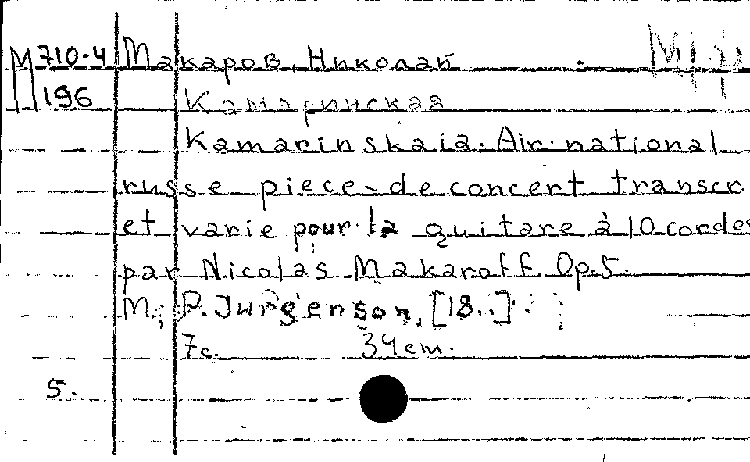 М 710-4 Макаров, Николай
196 Камаринская
Kamarinskaia. Air national
russe piece de concert transcr
et varie pour la guitare à 10 cordes
par Nicolas Makaroff. Op.5.
М., P. Jurgenson, [18..].
7с. 34cm.
5.